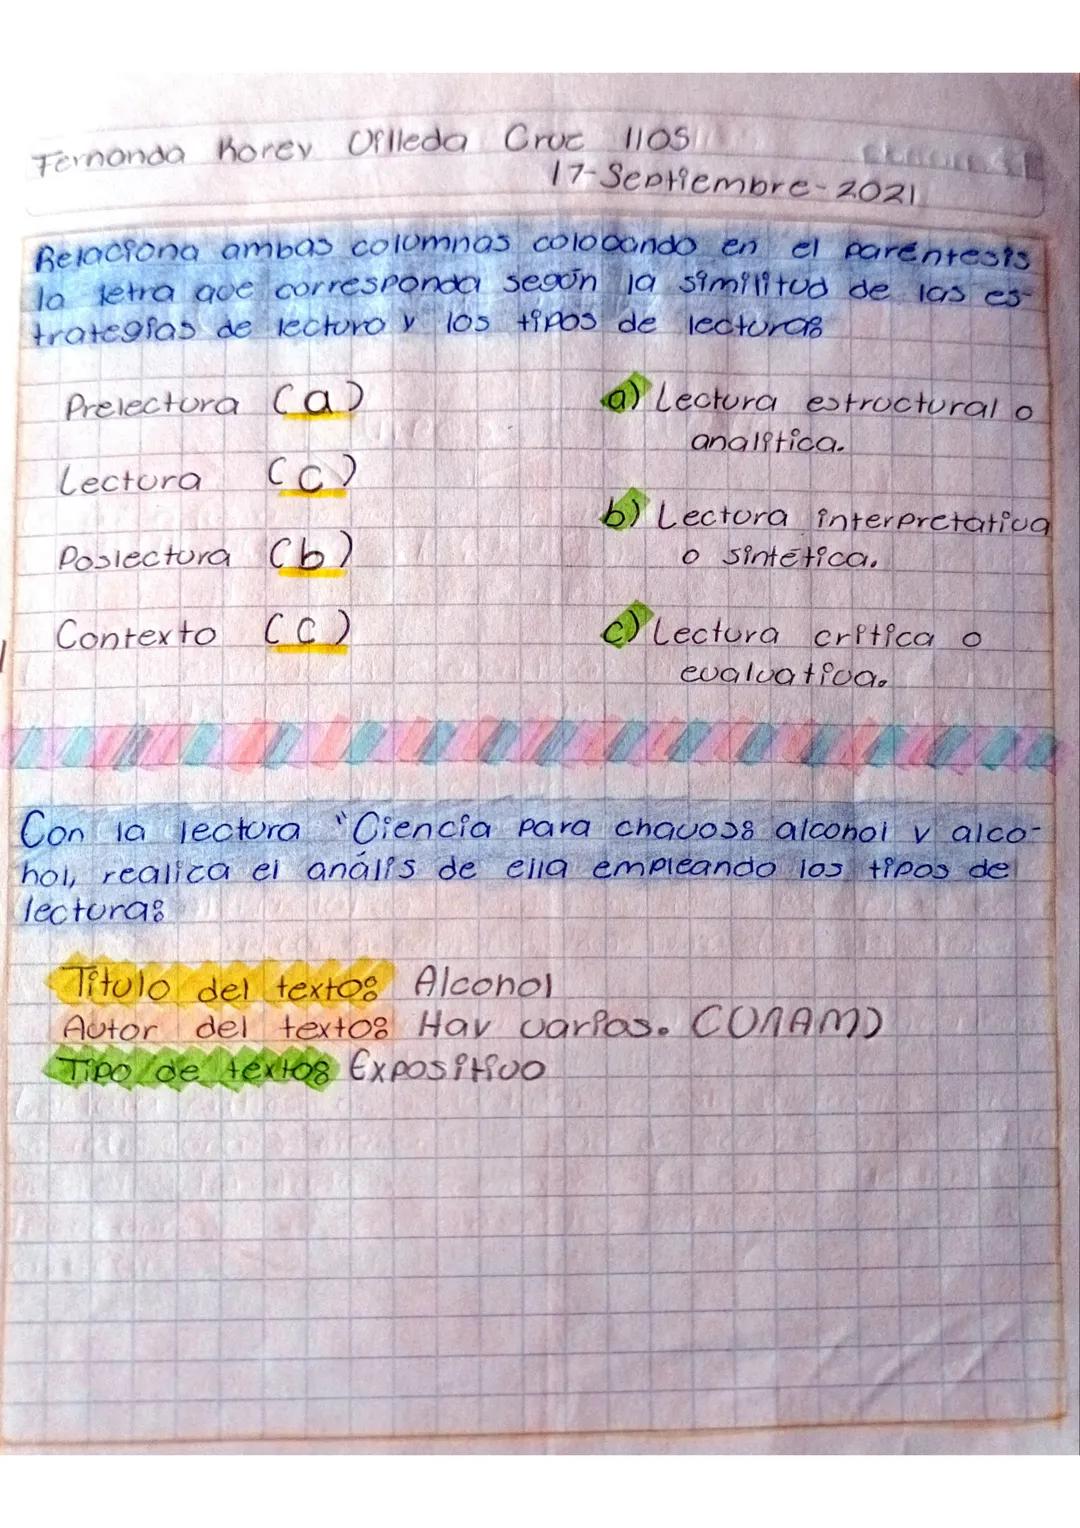 Fernanda Korey Ofilleda Cruz 1105
17-Septiembre-2021
Relaciona ambas columnas colocando en el paréntesis
la letra que corresponda según la similitud de las es-
trategias de lectura y los tipos de lectura:
Prelectura (a)
a) Lectura estructural o
analítica.
Lectura (c)
b) Lectura interpretativa
o sintética.
Poslectura (b)
Contexto (c)
c) Lectura crítica o
evaluativa.
Con la lectura "Ciencia para chavos: alcohol y alco-
hol, realiza el anális de ella empleando los tipos de
lectura:
Título del texto: Alcohol
Autor del texto: Hay varias. (UNAM)
Tipo de texto: Expositivo